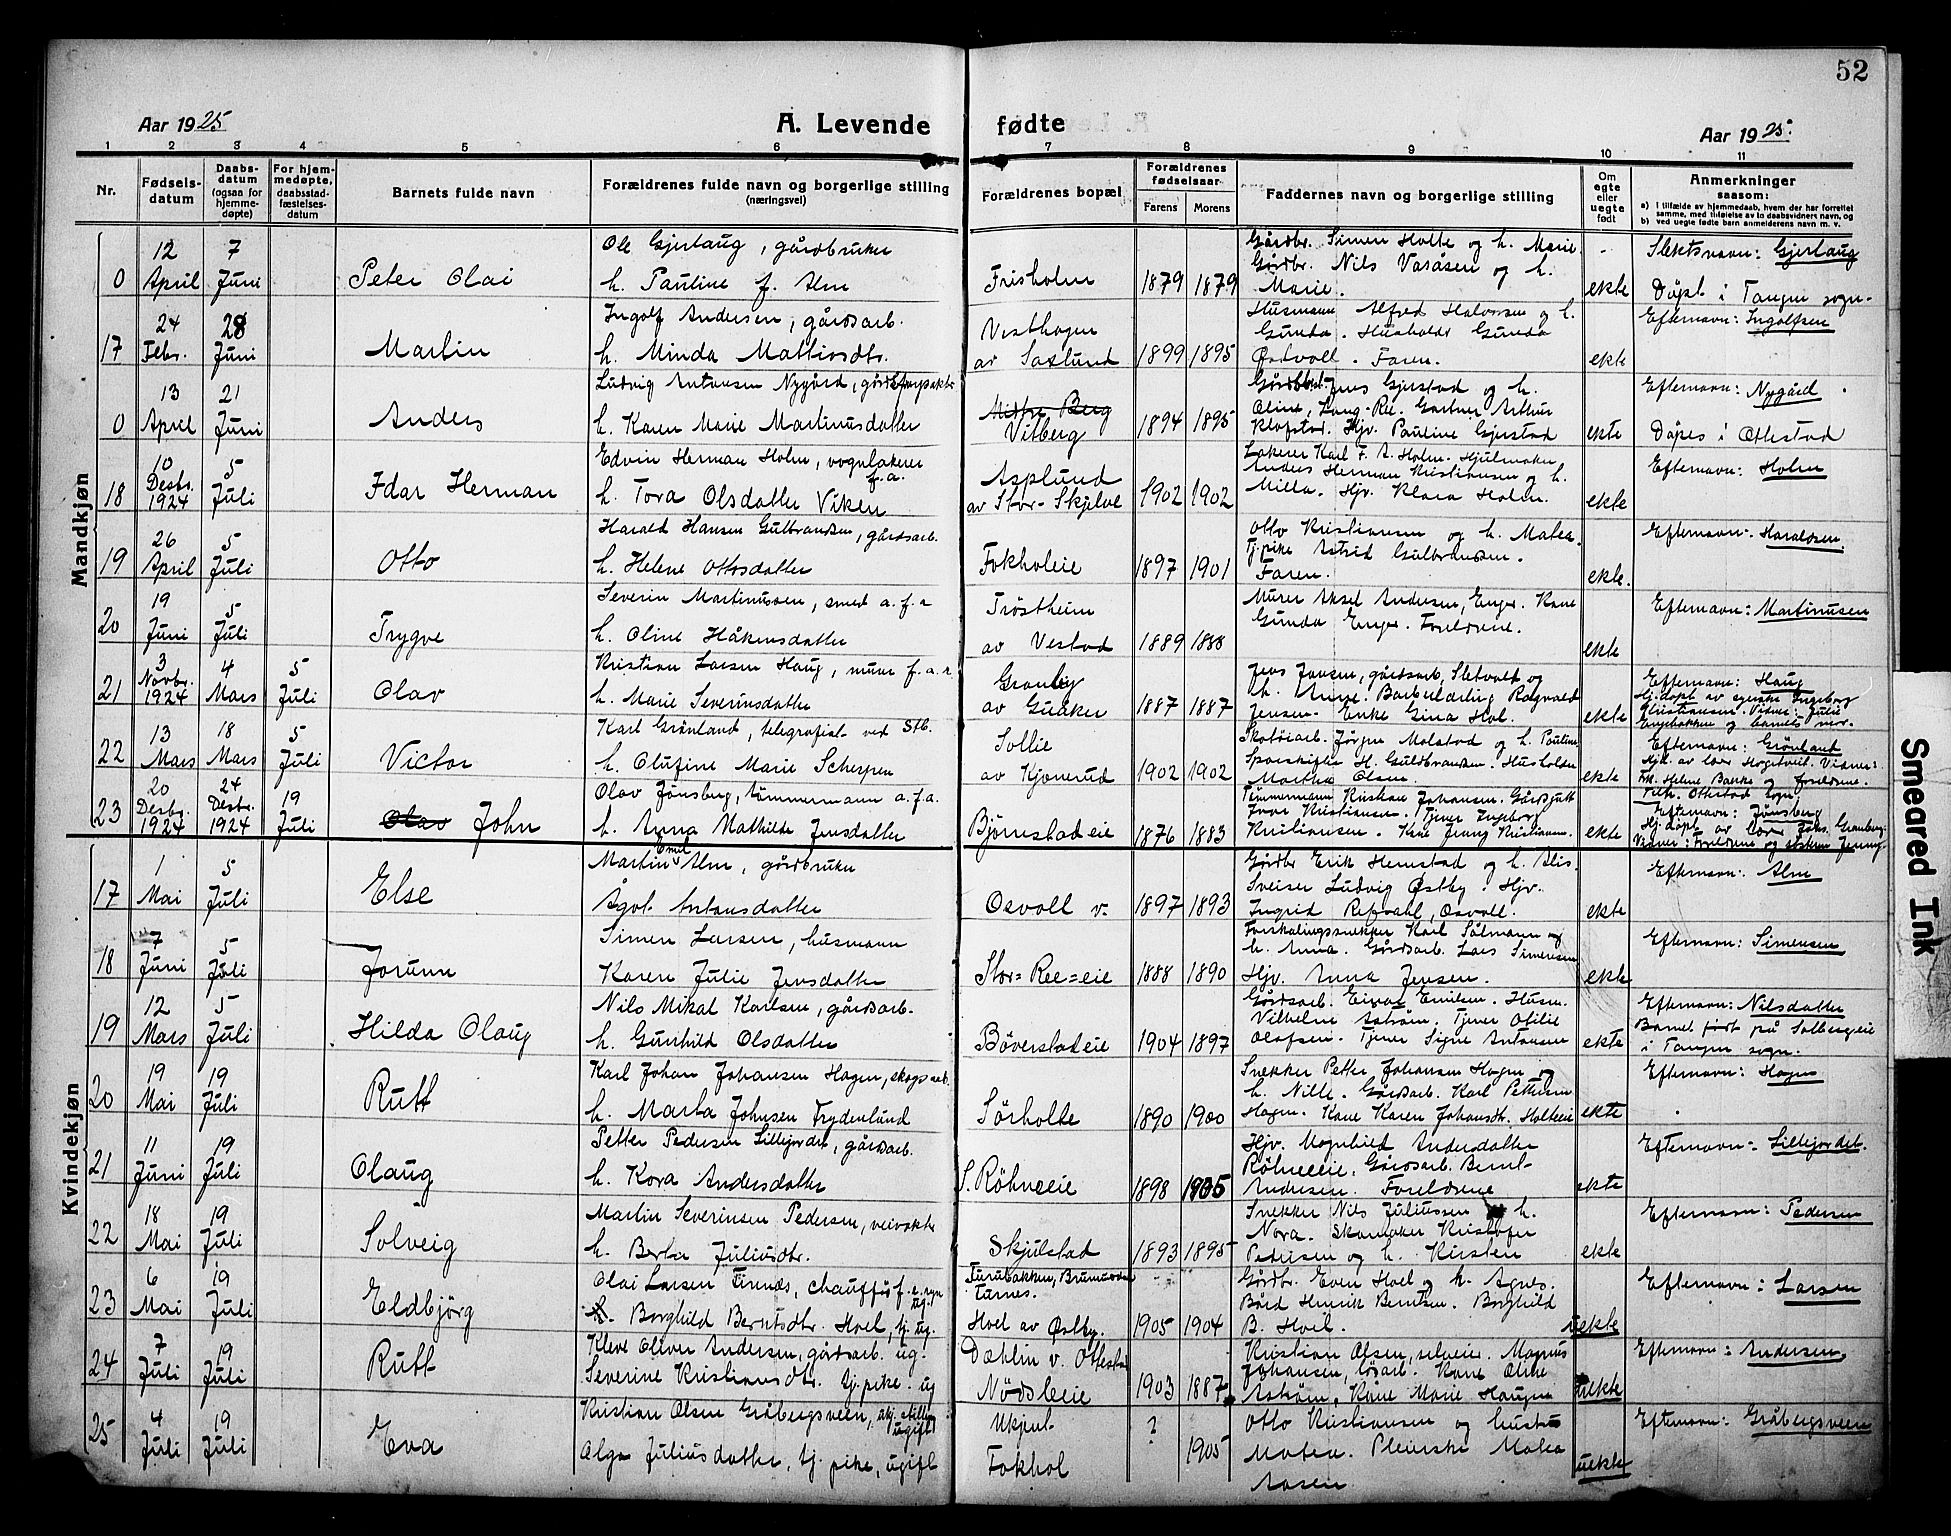 52
Aar 1925
A. Levende
fødte
Aar 1925
1 2 3 4 5 6 7 8 9 10 11
Nr.
Fødsels-
datum
Daabs-
datum
(ogsaa for
hjemme-
døpte)
For hjem-
medøpte,
daabsstad-
fæstelses-
datum
Barnets fulde navn
Forældrenes fulde navn og borgerlige stilling
(næringsvei)
Forældrenes bopæl
Forældrenes
fødselsaar
Farens Morens
Faddernes navn og borgerlige stilling
Om
egte
eller
uegte
født
Anmerkninger
saasom:
a) i tilfælde av hjemmedaab, hvem der har forrettet
samme, med tilføielse av to daabsvidners navn, og
b) ved uegte fødte barn anmelderens navn m. v.
Mandkjøn
0 12 April 7 Juni
Peter Olai
Ole Gjerlaug, gårdbruker
h. Pauline f. Alm
Frisholm
1879 1879
Gårdbr. Simen Holte og h. Marie
Gårdbr. Nils Varåsen og h.
Marie.
ekte
Slektsnavn: Gjerlaug
Døpt i Tangen sogn.
17 24 Febr. 28 Juni
Martin
Ingolf Andersen, gårdsarb.
h. Minda Mathisdtr.
Vesthagen
av Saxlund
1899 1895
Husmann Alfred Halvorsen og h.
Gunda. Husholdr Gunda
Østvoll. Faren.
ekte
Efternavn: Ingolfsen
0 13 April 21 Juni
Anders
Ludvig Antonsen Nygård, gårdsforpakter
h. Karen Marie Martinusdatter
Vitberg
1894 1895
Jens Gjerstad og h.
Oline, Lang-Ree. Gartner Arthur
Klofstad. Hjv. Pauline Gjerstad
ekte
Efternavn: Nygård
Døpes i Ottestad
18 10 Desbr. 1924 5 Juli
Idar Herman
Edvin Herman Holm, vognlakerer
f.a.
h. Tora Olsdatter Viken
Asplund
av Stor-Skjelve
1902 1902
Lakerer Karl F. A. Holm. Hjulmaker
Anders Herman Kristiansen og h.
Milla. Hjv. Klara Holm.
ekte
Efternavn: Holm
19 26 April 5 Juli
Otto
Harald Hansen Gulbrandsen, gårdsarb.
h. Helene Ottosdatter
Fokholeie
1897 1901
Otto Kristiansen og h. Matea.
Tj.pike Astrid Gulbrandsen.
Faren.
ekte.
Efternavn: Haraldsen.
20 19 Juni 5 Juli
Trygve
Severin Martinusen, smed a.f.a
h. Oline Håkensdatter
Trøstheim
av Vestad
1889 1888
Murer Aksel Andersen, Enger. Kone
Gunda Enger. Foreldrene.
ekte
Efternavn: Martinusen
21 3 Novbr. 1924 4 Mars 5 Juli
Olav
Kristian Larsen Haug, murer f.a.a
h. Marie Severinsdatter
Granly
av Guåker
1887 1887
Jens Jensen, gårdsarb, Sletvold og
h. Anne. Barberlærling Ragnvald
Jensen. Enke Gina Hol.
ekte
Efternavn: Haug
Hj.døpt av synske Ingeborg
Christiansen. Vidner: Julie
Engebakken og barnets mor.
22 13 Mars 18 Mars 5 Juli
Victor
Karl Grønland, telegrafist ved Stb.
h. Olufine Marie Schespen
Sollie
av Kjonerud
1902 1902
Skotøiarb. Jørgen Molstad og h. Pauline
Sporskifter H. Guldbrandsen. Husholdn
Martha Olsen.
ekte
Efternavn: Grønland
Hjd. av lær Hogstveit. Vidner:
Frk. Helene Bakke og foreldrene.
Tilh. Ottestad sogn
23 20 Desbr. 1924 24 Desbr. 1924 19 Juli
Olav John
Olav Jønsberg, tømmermann a.f.a.
h. Anna Mathilde Jensdatter
Bjørnstadeie
1876 1883
Tømmermann Kristian Johansen. Gårdsgutt
Ivar Kristiansen. Tjener Ingeborg
Kristiansen. Kone Jenny Kristiansen.
ekte
Efternavn: Jønsberg
Hj.døpt av lærer Johs. Granberg.
Vidner: Foreldrene og søsteren Jenny.
Kvindekjøn
17 1 Mai 5 Juli
Else
Martin Emil Alm, gårdbruker
Ågot Antonsdatter
Osvoll v.
1897 1893
Gårdbr Erik Hemstad og h. Alis
Sveiser Ludvig Østby. Hjv.
Ingrid Refvahl, Osvoll.
ekte
Efternavn: Alm
18 7 Juni 5 Juli
Jorunn
Simen Larsen, husmann
Karen Julie Jensdatter
Stor-Ree-eie
1888 1890
Forskalingssnekker Karl Sålmann og
h. Anna. Gårdsarb. Lars Simensen
Hjv. Anna Jensen.
ekte
Efternavn: Simensen
19 12 Mars 5 Juli
Hilda Olaug
Nils Mikal Karlsen, gårdsarb.
h. Gunhild Olsdatter
Bøverstadeie
1904 1897
Gårdsarb. Einar Emilsen. Husm.
Vilhelm Åstrøm. Tjener Otilie
Olafsen. Tjener Signe Antonsen
ekte
Efternavn: Nilsdatter
Barnet født på Solbergeie
i Tangen sogn.
20 19 Mai 19 Juli
Rutt
Karl Johan Johansen Hagen, skogsarb.
h. Marta Johnsen Frydenlund
Sørholte
1890 1900
Snekker Petter Johansen Hagen og
h. Nille. Gårdsarb. Karl Pettersen
Hagen. Kone Karen Johansdtr. Holteeie
ekte
Efternavn: Hagen
21 11 Juni 19 Juli
Olaug
Petter Pedersen Lillejordet, gårdsarb.
h. Kora Andersdatter
S. Røhneeie
1898 1905
Hjv. Magnhild Andersdatter
Røhneeie. Gårdsarb. Bernt
Andersen. Foreldrene
ekte
Efternavn: Lillejordet.
22 18 Mai 19 Juli
Solveig
Martin Severinsen Pedersen, veivokter
h. Berta Juliusdtr.
Skjulstad
1893 1895
Snekker Nils Juliussen og h.
Nora. Skomaker Kristofer
Pedersen og h. Kirsten
ekte
Efternavn: Pedersen
23 6 Mai 19 Juli
Eldbjørg
Olai Larsen Tirnæs, chauffør
Borghild Berntsdtr. Hoel, tj. ug.
Furubakken, Brumunddal
Furnes.
Hoel av Østby.
1905 1904
Gårdbr. Even Hoel og h. Agnes.
Bård Henrik Berntsen. Borghild
B. Hoel.
uekte
Efternavn: Larsen
24 7 Juli 19 Juli
Rutt
Kleve Oliver Andersen, gårdsarb. ug.
Severine Kristiansdtr. tj.pike. ug
Dæhlin v. Ottestad
Nødsleeie
1903 1887
Kristian Olsen, selveier. Magnus
Johansen, løsarb. Kone Oline
Åstrøm, Kone Marie Haugen
uekte
Efternavn: Andersen.
25 4 Juli 19 Juli
Eva
Kristian Olsen Gråbergsveen,
ugift
Alga Juliusdatter, tj.pike, ugift
Ukjent
Fokhol
? 1905
Otto Kristiansen og hustru
Matea. Pleierske Matea
Aasen
uekte
Efternavn: Gråbergsveen
Smeared Ink